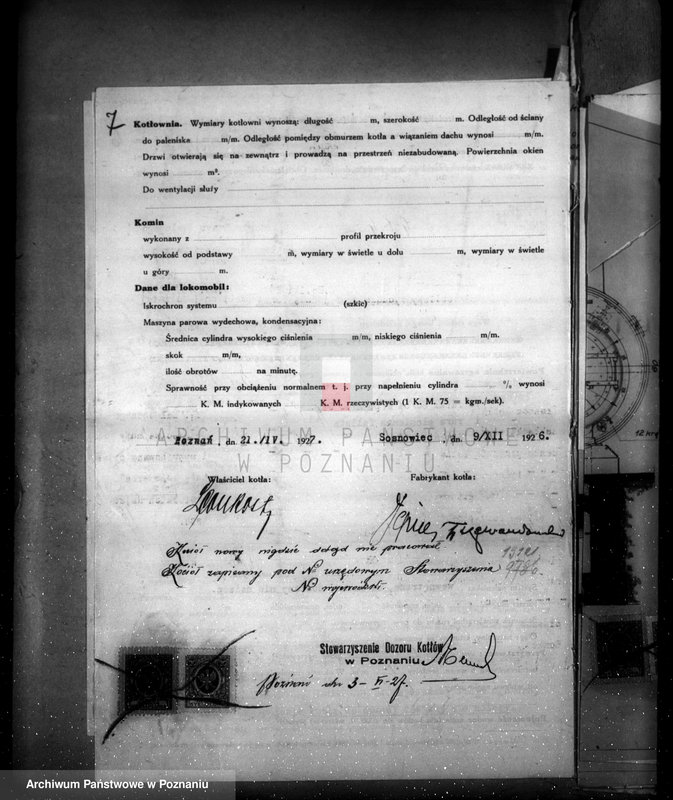 7
Kotłownia. Wymiary kotłowni wynoszą: długość m, szerokość m. Odległość od ściany
do paleniska m/m. Odległość pomiędzy obmurzem kotła a wiązaniem dachu wynosi m/m.
Drzwi otwierają się na zewnątrz i prowadzą na przestrzeń niezabudowaną. Powierzchnia okien
wynosi m².
Do wentylacji służy
Komin
wykonany z profil przekroju
wysokość od podstawy m, wymiary w świetle u dołu m, wymiary w świetle
u góry m.
Dane dla lokomobil:
Iskrochron systemu (szkic)
Maszyna parowa wydechowa, kondensacyjna:
Średnica cylindra wysokiego ciśnienia m/m, niskiego ciśnienia m/m.
skok m/m,
ilość obrotów na minutę.
Sprawność przy obciążeniu normalnem t. j. przy napełnieniu cylindra % wynosi
K. M. indykowanych K. M. rzeczywistych (1 K. M. 75 = kgm./sek).
ARCHIWUM PAŃSTWOWE
W POZNANIU
Poznań, dn. 21./IV. 1927. Sosnowiec, dn. 9/XII 1926.
Właściciel kotła: Fabrykant kotła:
Kocioł nowy nigdzie dotąd nie pracował
Kocioł zapisany pod No urzędowym Stowarzyszenia
No
Stowarzyszenie Dozoru Kotłów
w Poznaniu
Poznań dn 3-VI-27.
60
12
Archiwum Państwowe w Poznaniu